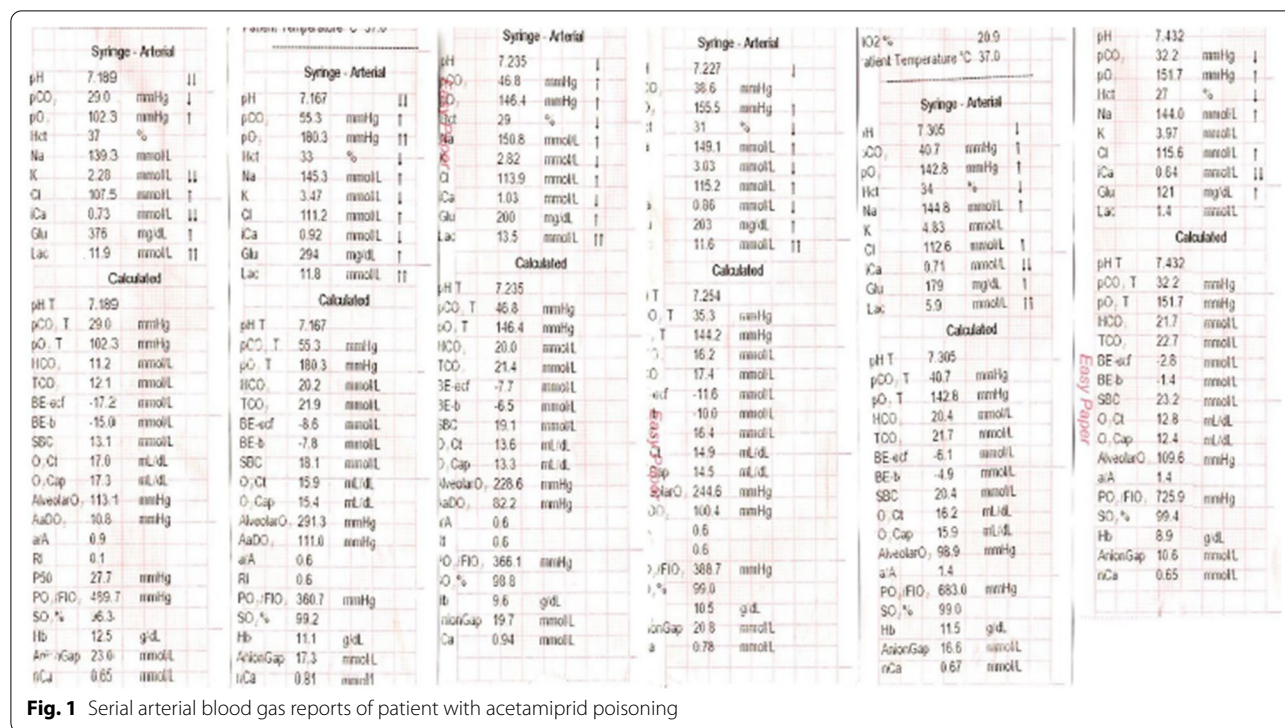 Syringe - Arterial
pH 7.189 ↓↓
pCO₂ 29.0 mmHg ↓
pO₂ 102.3 mmHg ↑
Hct 37 %
Na 139.3 mmol/L
K 2.28 mmol/L ↓↓
Cl 107.5 mmol/L ↑
iCa 0.73 mmol/L ↓↓
Glu 376 mg/dL ↑
Lac 11.9 mmol/L ↑↑
Calculated
pH T 7.189
pCO₂ T 29.0 mmHg
pO₂ T 102.3 mmHg
HCO₃ 11.2 mmol/L
TCO₂ 12.1 mmol/L
BE-ecf -17.2 mmol/L
BE-b -15.0 mmol/L
SBC 13.1 mmol/L
O₂Ct 17.0 mL/dL
O₂Cap 17.3 mL/dL
AlveolarO₂ 113.1 mmHg
AaDO₂ 10.8 mmHg
a/A 0.9
RI 0.1
P50 27.7 mmHg
PO₂/FIO₂ 489.7 mmHg
SO₂% 96.3
Hb 12.5 g/dL
AnionGap 23.0 mmol/L
nCa 0.65 mmol/L
Patient Temperature °C 37.0
Syringe - Arterial
pH 7.167 ↓↓
pCO₂ 55.3 mmHg ↑
pO₂ 180.3 mmHg ↑↑
Hct 33 % ↓
Na 145.3 mmol/L ↑
K 3.47 mmol/L ↓
Cl 111.2 mmol/L ↑
iCa 0.92 mmol/L ↓
Glu 294 mg/dL ↑
Lac 11.8 mmol/L ↑↑
Calculated
pH T 7.167
pCO₂ T 55.3 mmHg
pO₂ T 180.3 mmHg
HCO₃ 20.2 mmol/L
TCO₂ 21.9 mmol/L
BE-ecf -8.6 mmol/L
BE-b -7.8 mmol/L
SBC 18.1 mmol/L
O₂Ct 15.9 mL/dL
O₂Cap 15.4 mL/dL
AlveolarO₂ 291.3 mmHg
AaDO₂ 111.0 mmHg
a/A 0.6
RI 0.6
PO₂/FIO₂ 360.7 mmHg
SO₂% 99.2
Hb 11.1 g/dL
AnionGap 17.3 mmol/L
nCa 0.81 mmol/l
Syringe - Arterial
pH 7.235 ↓
pCO₂ 46.8 mmHg ↑
O₂ 146.4 mmHg ↑
Hct 29 % ↓
Na 150.8 mmol/L ↑
2.82 mmol/L ↓
Cl 113.9 mmol/L ↑
iCa 1.03 mmol/L ↓
Glu 200 mg/dL ↑
Lac 13.5 mmol/L ↑↑
Calculated
pH T 7.235
pCO₂ T 46.8 mmHg
pO₂ T 146.4 mmHg
HCO₃ 20.0 mmol/L
TCO₂ 21.4 mmol/L
BE-ecf -7.7 mmol/L
BE-b -6.5 mmol/L
SBC 19.1 mmol/L
O₂Ct 13.6 mL/dL
O₂Cap 13.3 mL/dL
AlveolarO₂ 228.6 mmHg
AaDO₂ 82.2 mmHg
a/A 0.6
RI 0.6
PO₂/FIO₂ 366.1 mmHg
SO₂% 98.8
Hb 9.6 g/dL
AnionGap 19.7 mmol/L
nCa 0.94 mmol/L
Easy Paper
Syringe - Arterial
7.227 ↓
38.6 mmHg
155.5 mmHg ↑
31 % ↓
149.1 mmol/L ↑
3.03 mmol/L ↓
115.2 mmol/L ↑
0.86 mmol/L ↓
203 mg/dL ↑
11.6 mmol/L ↑↑
Calculated
T 7.254
O₂ T 35.3 mmHg
T 144.2 mmHg
16.2 mmol/L
17.4 mmol/L
-ecf -11.6 mmol/L
-10.0 mmol/L
16.4 mmol/L
14.9 mL/dL
14.5 mL/dL
olarO₂ 244.6 mmHg
DO₂ 100.4 mmHg
0.6
0.6
/FIO₂ 388.7 mmHg
% 99.0
10.5 g/dL
onGap 20.8 mmol/L
a 0.78 mmol/L
Easy Paper
IO2 % 20.9
atient Temperature °C 37.0
Syringe - Arterial
pH 7.305 ↓
pCO₂ 40.7 mmHg ↑
pO₂ 142.8 mmHg ↑
Hct 34 % ↓
Na 144.8 mmol/L ↑
K 4.83 mmol/L
Cl 112.6 mmol/L ↑
iCa 0.71 mmol/L ↓↓
Glu 179 mg/dL ↑
Lac 5.9 mmol/L ↑↑
Calculated
pH T 7.305
pCO₂ T 40.7 mmHg
pO₂ T 142.8 mmHg
HCO₃ 20.4 mmol/L
TCO₂ 21.7 mmol/L
BE-ecf -6.1 mmol/L
BE-b -4.9 mmol/L
SBC 20.4 mmol/L
O₂Ct 16.2 mL/dL
O₂Cap 15.9 mL/dL
AlveolarO₂ 98.9 mmHg
a/A 1.4
PO₂/FIO₂ 683.0 mmHg
SO₂% 99.0
Hb 11.5 g/dL
AnionGap 16.6 mmol/L
nCa 0.67 mmol/L
pH 7.432
pCO₂ 32.2 mmHg ↓
pO₂ 151.7 mmHg ↑
Hct 27 % ↓
Na 144.0 mmol/L ↑
K 3.97 mmol/L
Cl 115.6 mmol/L ↑
iCa 0.64 mmol/L ↓↓
Glu 121 mg/dL ↑
Lac 1.4 mmol/L
Calculated
pH T 7.432
pCO₂ T 32.2 mmHg
pO₂ T 151.7 mmHg
HCO₃ 21.7 mmol/L
TCO₂ 22.7 mmol/L
BE-ecf -2.8 mmol/L
BE-b -1.4 mmol/L
SBC 23.2 mmol/L
O₂Ct 12.8 mL/dL
O₂Cap 12.4 mL/dL
AlveolarO₂ 109.6 mmHg
a/A 1.4
PO₂/FIO₂ 725.9 mmHg
SO₂% 99.4
Hb 8.9 g/dL
AnionGap 10.6 mmol/L
nCa 0.65 mmol/L
Easy Paper
Fig. 1 Serial arterial blood gas reports of patient with acetamiprid poisoning